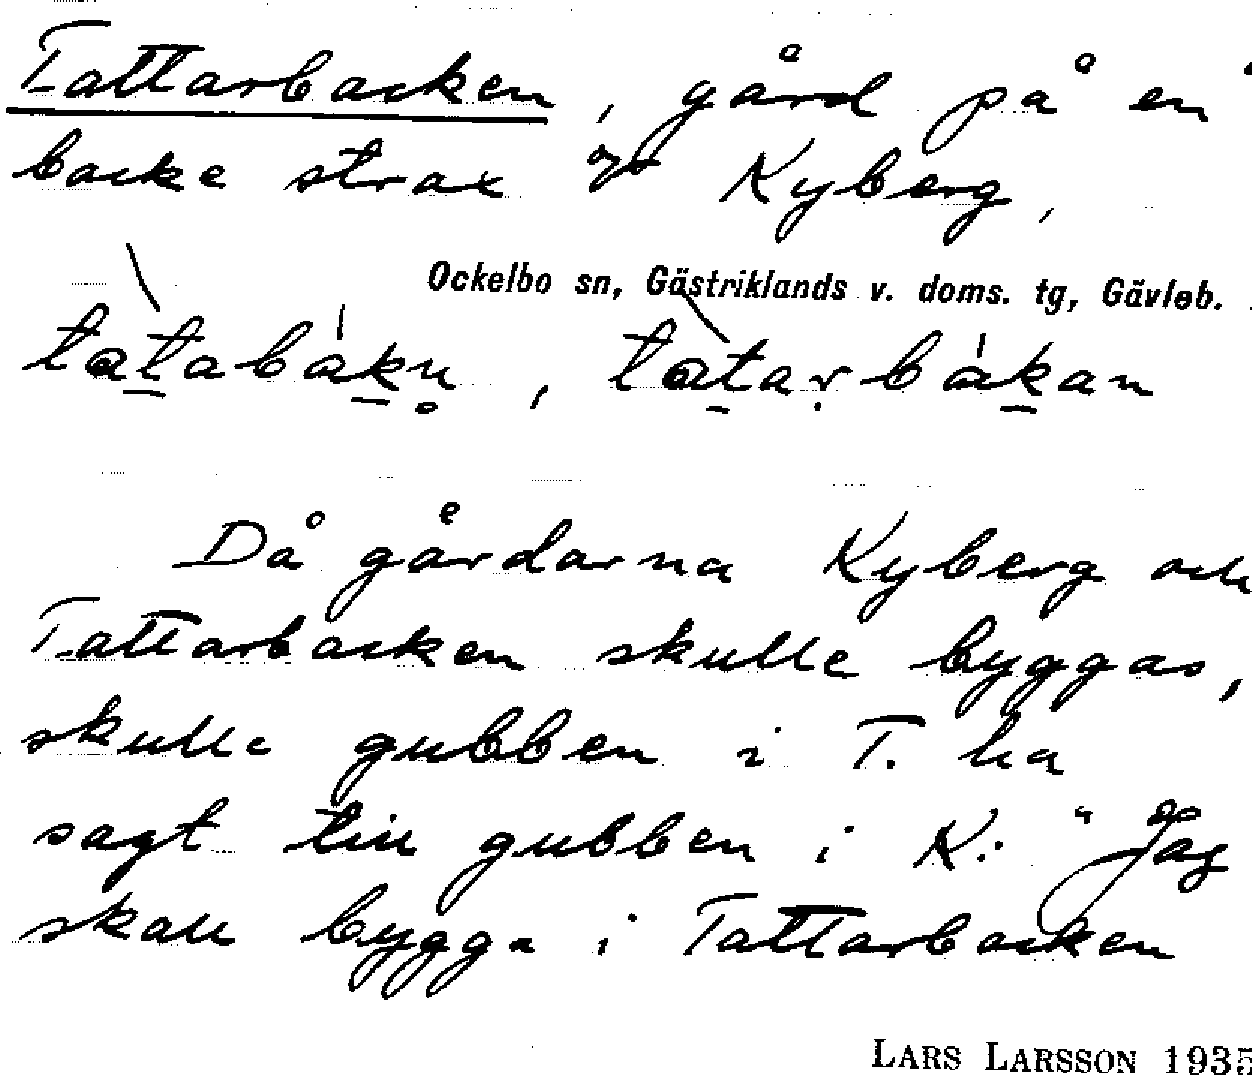 Tattarbacken, gård på en
backe strax ogo Kyberg,
Ockelbo sn, Gästriklands v. doms. tg, Gävleb.
tàtabákn̥, tàtarbákan
Då gårdarna Kyberg och
Tattarbacken skulle byggas,
skulle gubben i T. ha
sagt till gubben i K.: "Jag
skall bygga i Tattarbacken
LARS LARSSON 1935